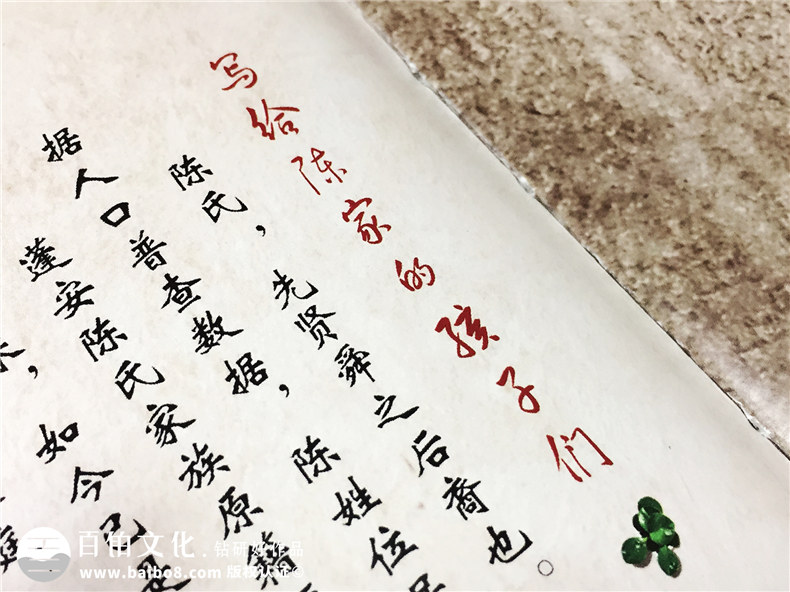 写给陈家的孩子们
陈氏，先贤舜之后裔也。
据人口普查数据，陈姓位
蓬安陈氏家族原籍
，如今已
庭
百铂文化.钻研好作品
www.baibo8.com 版权认证©